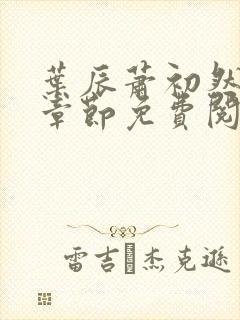 葉辰蕭初然
章節免費閱
雷吉·杰克遜